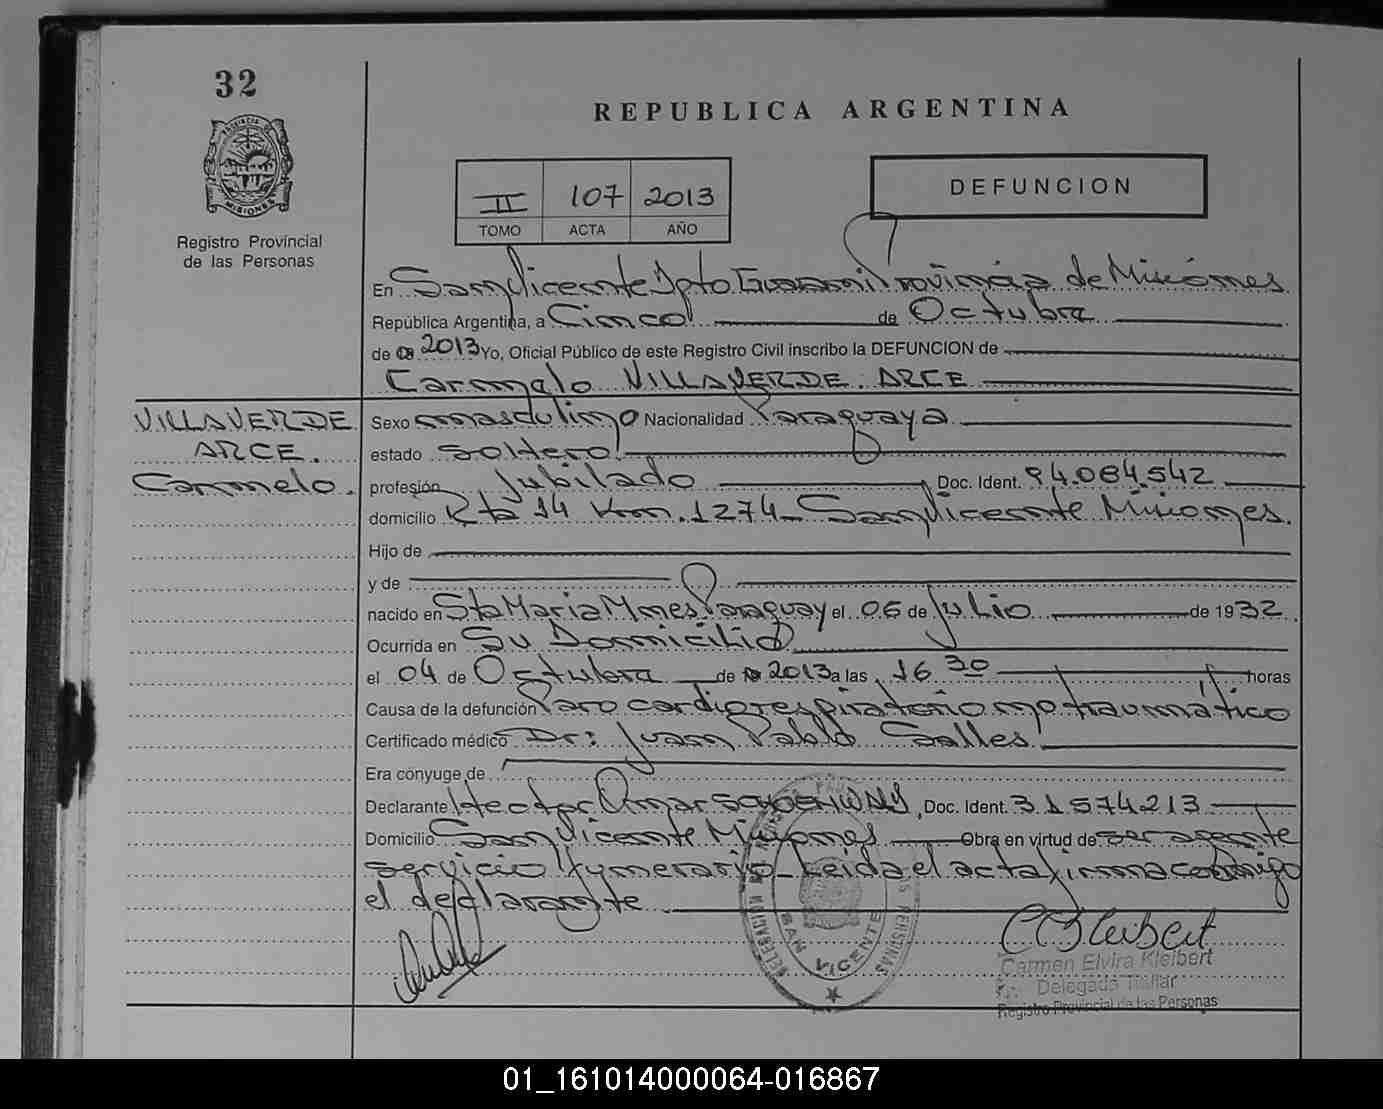 32
REPUBLICA ARGENTINA
PROVINCIA DE
MISIONES
Registro Provincial
de las Personas
II 107 2013
TOMO ACTA AÑO
DEFUNCION
En San Vicente Dpto Guarani Provincia de Misiones
República Argentina, a Cinco de Octubre
de 2013 Yo, Oficial Público de este Registro Civil inscribo la DEFUNCION de
Carmelo VILLAVERDE ARCE
VILLAVERDE
ARCE.
Carmelo.
Sexo masculino Nacionalidad Paraguaya
estado soltero
profesión Jubilado Doc. Ident. 94.084.542
domicilio Rta 14 Km. 1274 - San Vicente Misiones.
Hijo de
y de
nacido en Sta Maria Mnes Paraguay el 06 de Julio de 1932
Ocurrida en Su Domicilio
el 04 de Octubre de 2013 a las 16 30 horas
Causa de la defunción Paro cardiorespiratorio no traumático
Certificado médico Dr: Juan Pablo Salles
Era cónyuge de
Declarante Hector Omar Doc. Ident. 31574213
Domicilio San Vicente Misiones Obra en virtud de ser agente
servicio funerario - Leida el acta firma conmigo
el declarante
SAN VICENTE
CEKleibert
Carmen Elvira Kleibert
Delegada Titular
Registro Provincial de las Personas
01_161014000064-016867